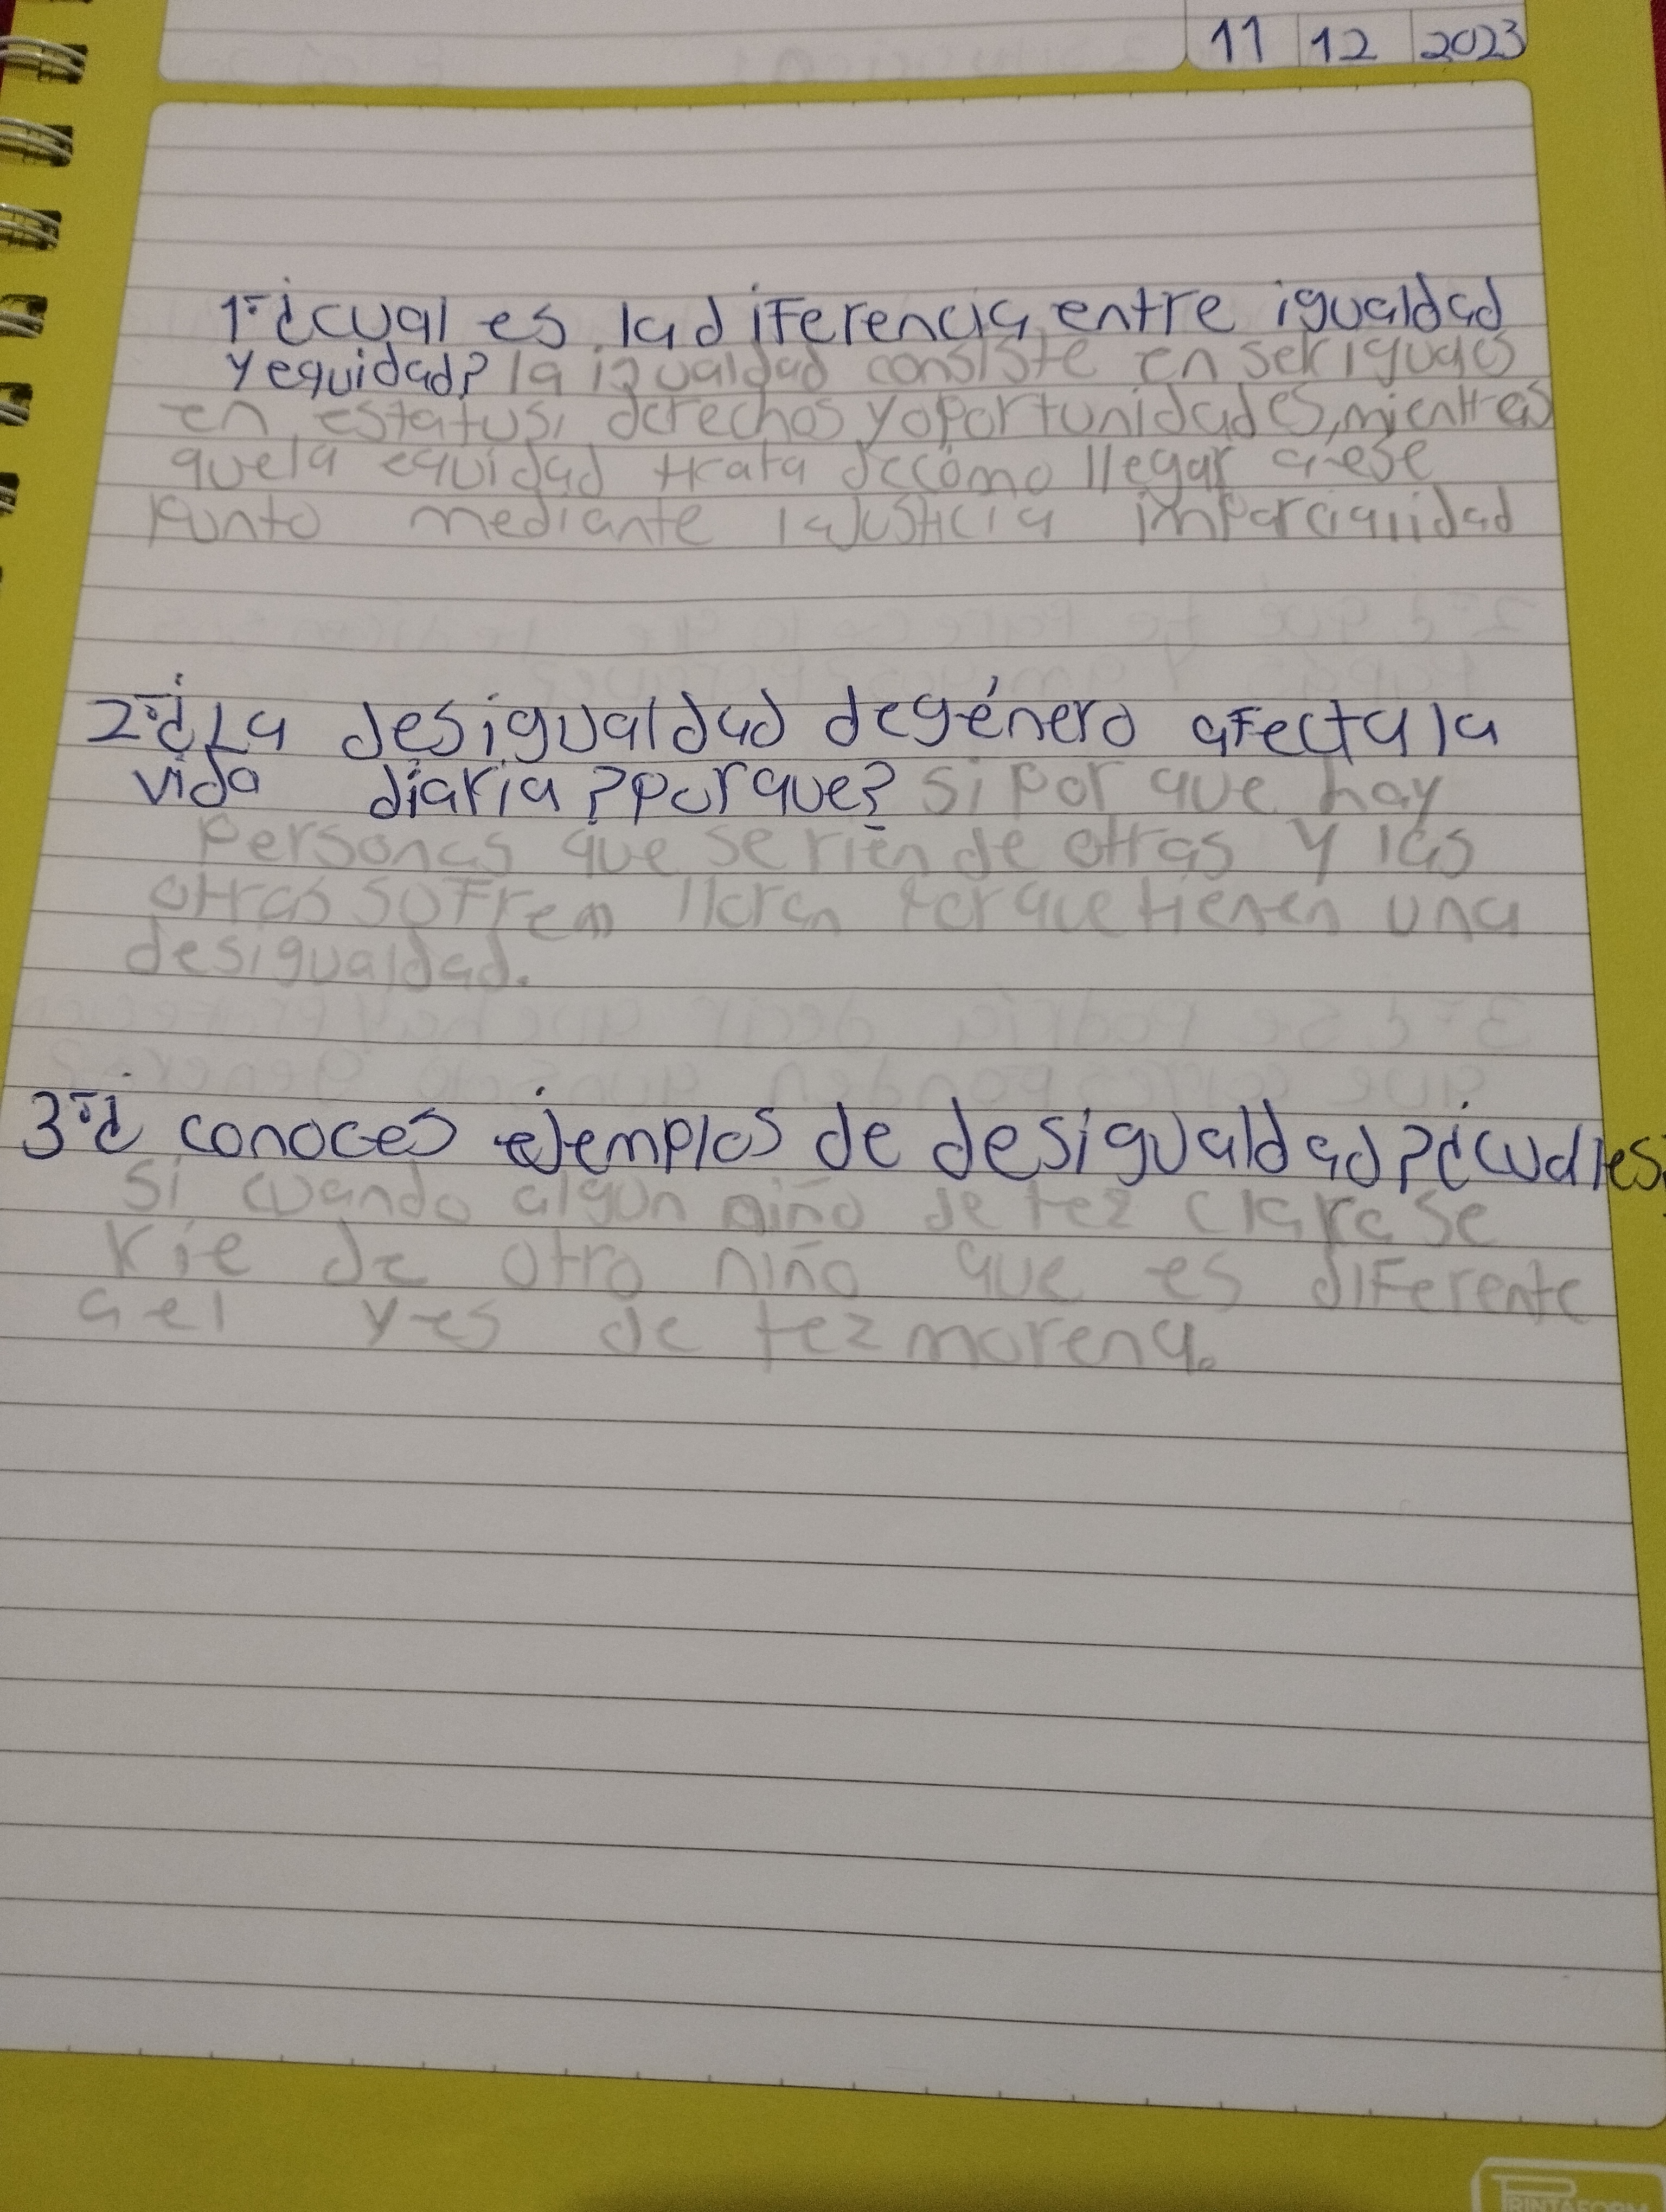 11 12 2023
1-¿cual es la diferencia entre igualdad
y equidad? la igualdad consiste en ser iguales
en estatus, derechos y oportunidades, mientras
que la equidad trata de cómo llegar a ese
punto mediante la justicia imparcialidad
2-¿La desigualdad de género afecta la
vida diaria? porque? si por que hay
personas que se rien de otras y las
otras sufren lloran porque tienen una
desigualdad.
3-¿conoces ejemplos de desigualdad? ¿cuales?
si cuando algún niño de tez clara se
rie de otro niño que es diferente
a el y es de tez morena.
PRINTAFORM